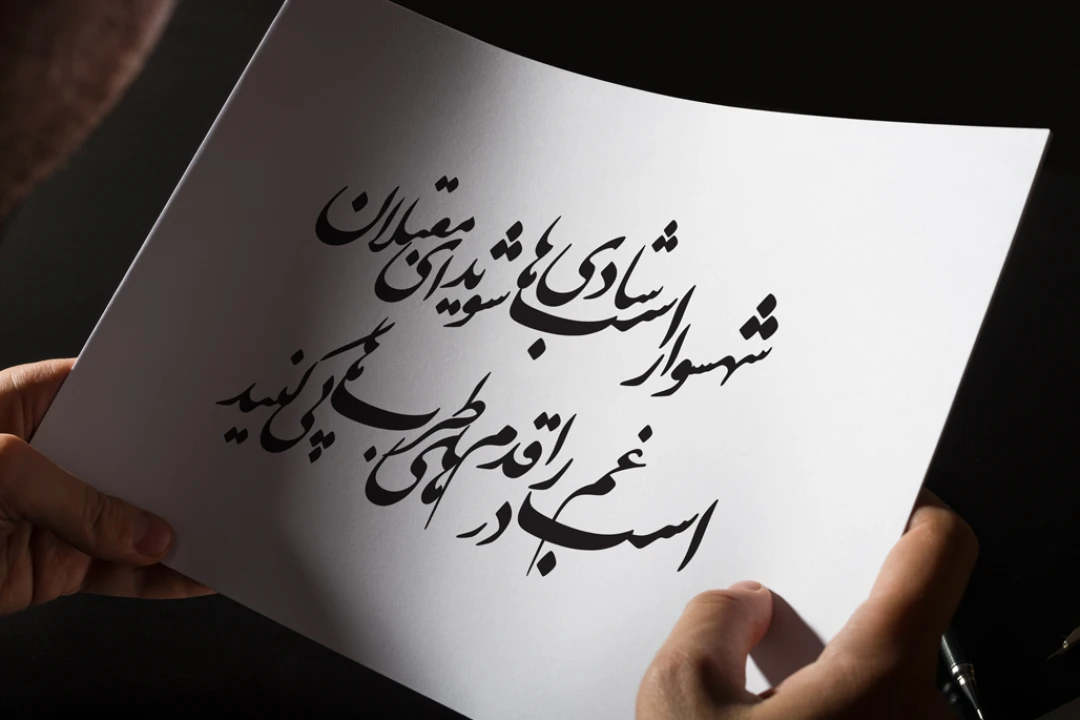 شهسوار اسب شادی‌ها شوید ای مقبلان
اسب غم را در قدم‌های طرب‌ها پی کنید